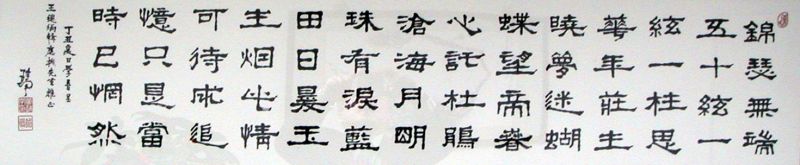 錦瑟無端
五十絃一
絃一柱思
華年莊生
曉夢迷蝴
蝶望帝春
心託杜鵑
滄海月明
珠有淚藍
田日暖玉
生烟此情
可待成追
憶只是當
時已惘然
丁丑夏日學書
先生雅正